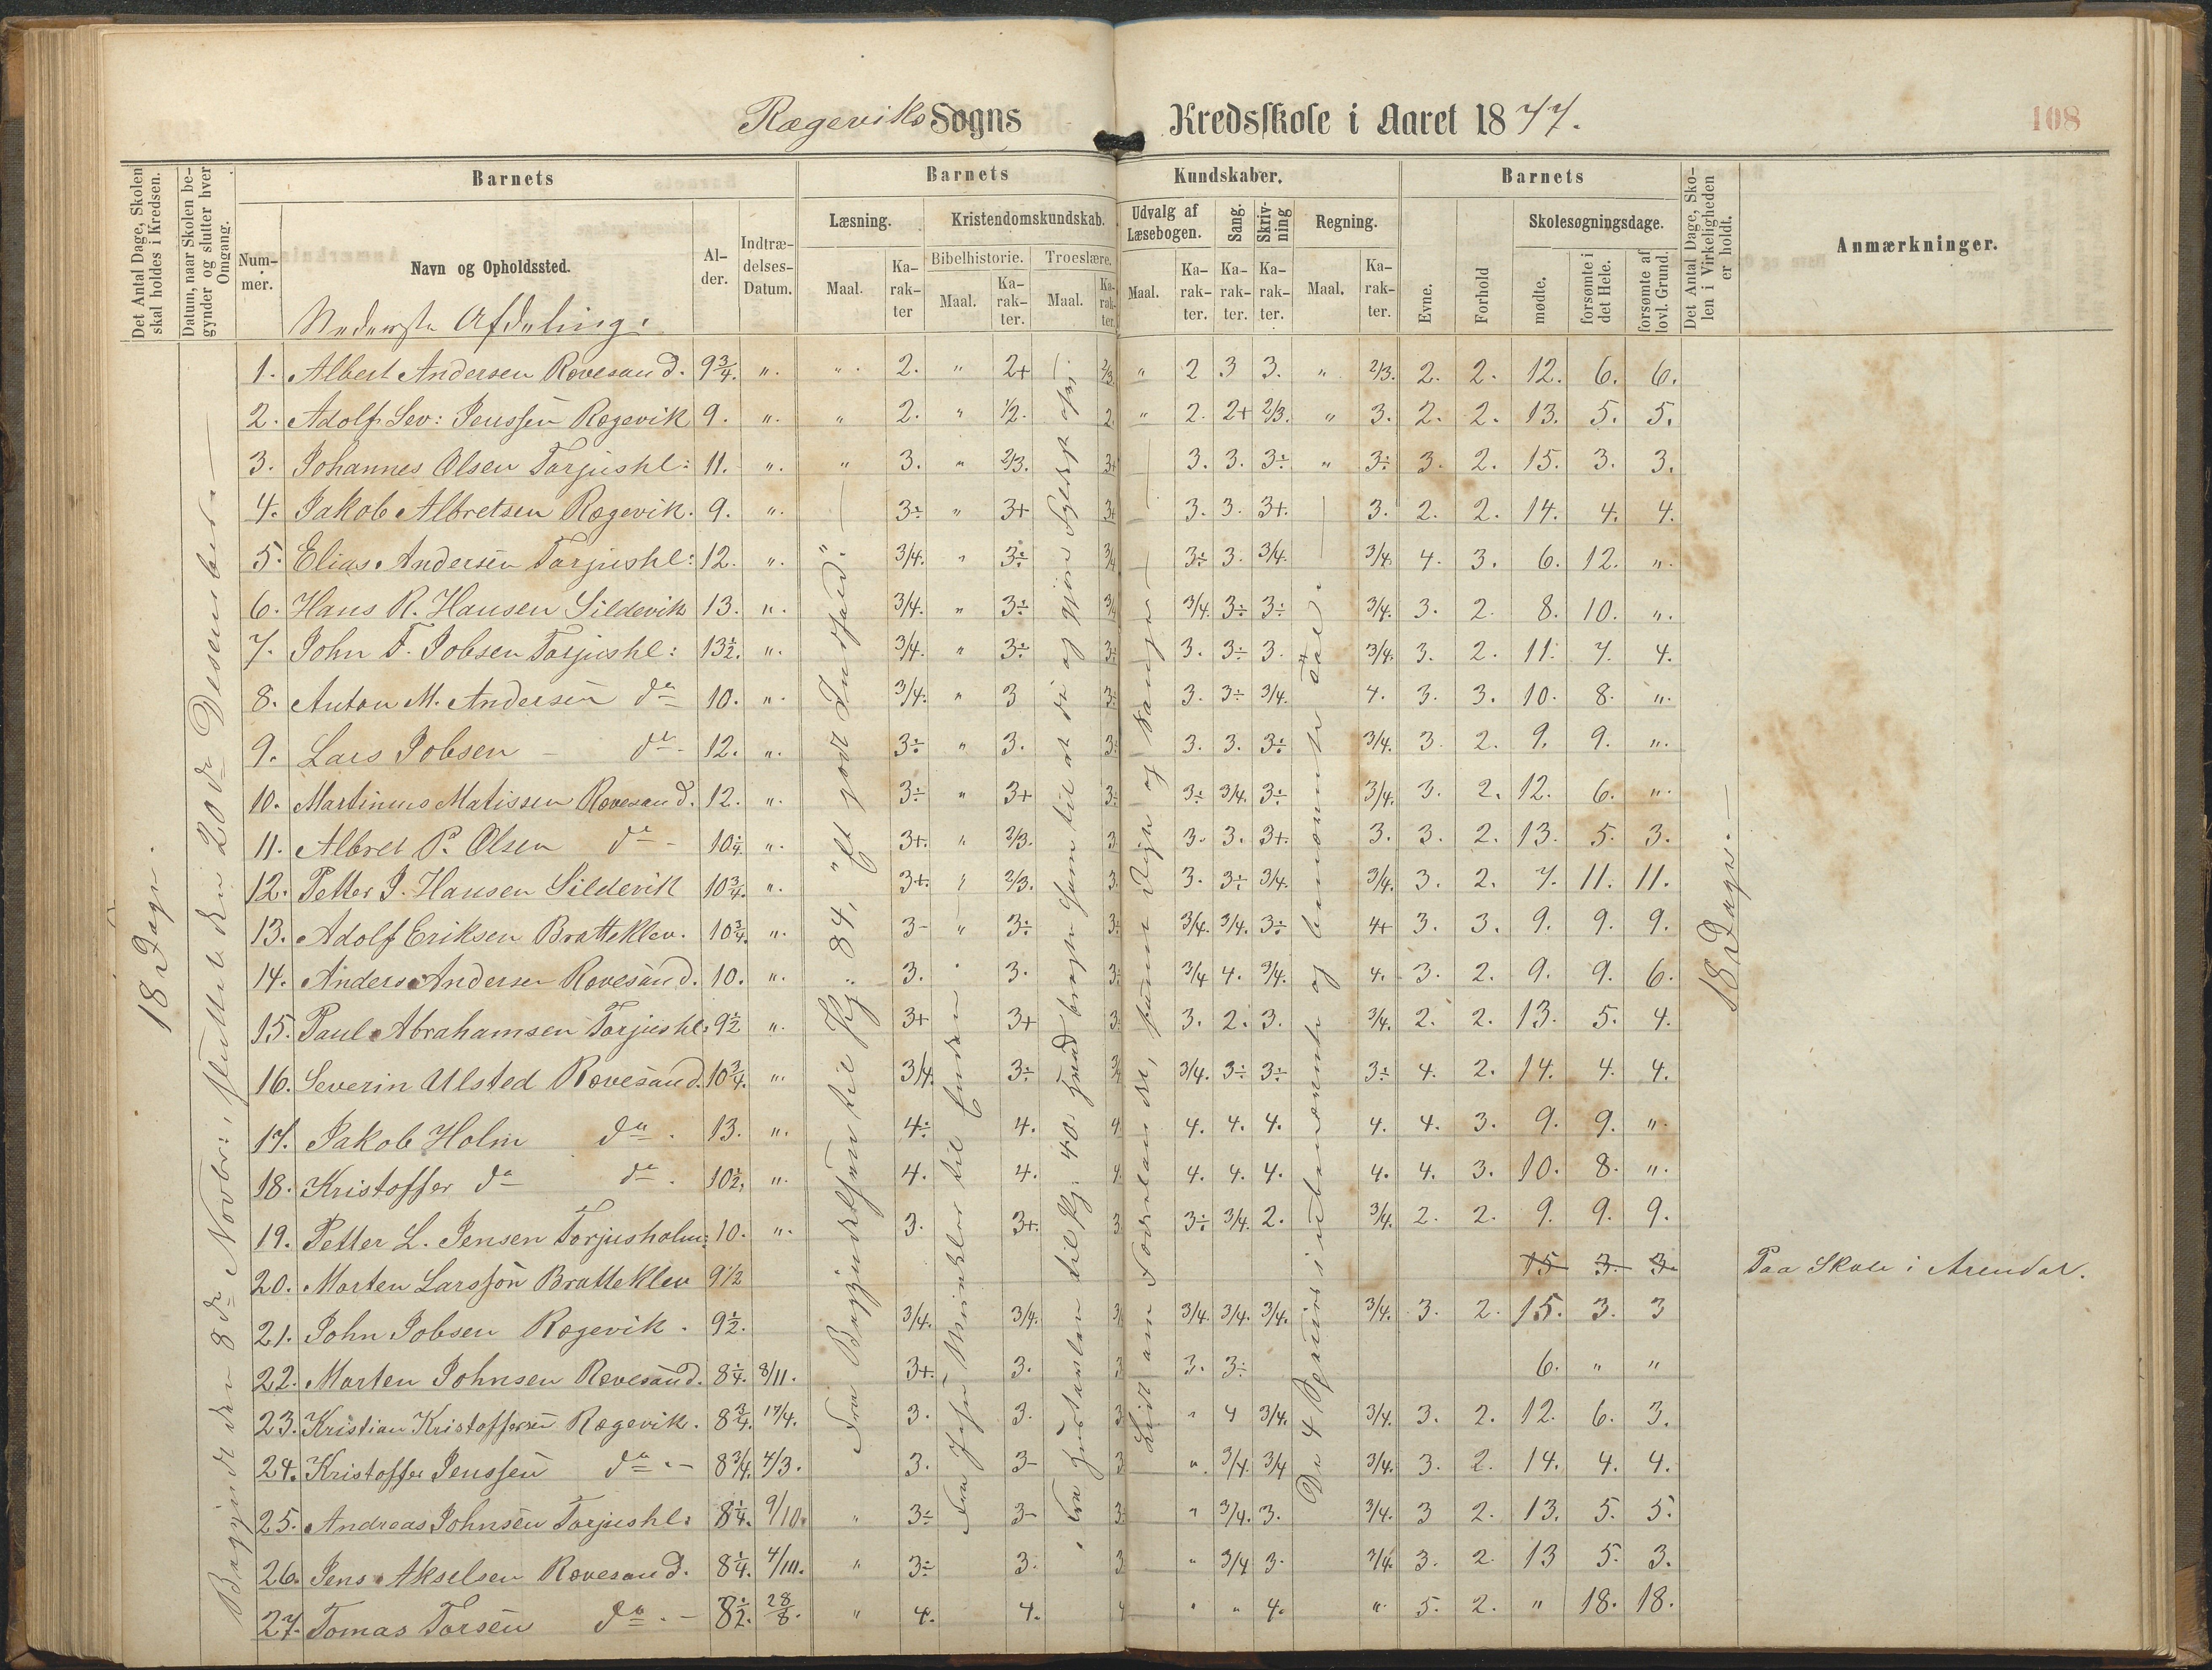 Rægeviks Sogns Kredsskole i Aaret 1877.
108
Det Antal Dage, Skolen skal holdes i Kredsen.
Datum, naar Skolen begynder og slutter hver Omgang.
Barnets
Nummer.
Navn og Opholdssted.
Alder.
Indtrædelses-Datum.
Barnets Kundskaber.
Læsning.
Maal.
Karakter
Kristendomskundskab.
Bibelhistorie.
Maal.
Karakter.
Troeslære.
Maal.
Karakter.
Udvalg af Læsebogen.
Maal.
Karakter.
Sang.
Karakter.
Skrivning
Karakter.
Regning.
Maal.
Karakter.
Barnets
Evne.
Forhold
Skolesøgningsdage.
mødte.
forsømte i det Hele.
forsømte af lovl. Grund.
Det Antal Dage, Skolen i Virkeligheden er holdt.
Anmærkninger.
Nederste Afdeling.
18 Dage.
Begyndt den 8de Novbr., sluttet den 20de Desember.
18 Dage.
1. Albert Andersen Rævesand. 9 3/4. ". ". 2. " 2+ 2/3. " 2 3 3. " 2/3. 2. 2. 12. 6. 6.
2. Adolf Sev: Jenssen Rægevik 9. ". " 2. " 1/2. 2. " 2. 2+ 2/3. " 3. 2. 2. 13. 5. 5.
3. Johannes Olsen Torjushl: 11. ". " 3. " 2/3. 3+ 3. 3. 3÷ " 3÷ 3. 2. 15. 3. 3.
4. Jakob Albretsen Rægevik. 9. ". 3÷ " 3+ 3+ 3. 3. 3+. 3. 2. 2. 14. 4. 4.
5. Elias Andersen Torjushl: 12. ". 3/4. " 3÷ 3/4 3÷ 3. 3/4. 3/4. 4. 3. 6. 12. ".
6. Hans R. Hansen Sildevik 13. ". 3/4. " 3÷ 3/4 3/4. 3÷ 3÷ 3/4. 3. 2. 8. 10. ".
7. John T. Jobsen Torjushl: 13 1/2. ". 3/4. " 3÷ 3÷ 3. 3÷ 3. 3/4. 3. 2. 11. 7. 4.
8. Anton M. Andersen do 10. ". 3/4. " 3 3÷ 3. 3÷ 3/4. 4. 3. 3. 10. 8. ".
9. Lars Jobsen - do - 12. ". 3÷ " 3. 3÷ 3. 3. 3÷ 3/4. 3. 2. 9. 9. ".
10. Martinus Matissen Rævesand. 12. ". 3÷ " 3+ 3÷ 3÷ 3/4. 3÷ 3/4. 3. 2. 12. 6. ".
11. Albret P. Olsen do - 10 1/4. ". 3+. " 2/3. 3. 3. 3. 3+. 3. 3. 2. 13. 5. 3.
12. Petter J. Hansen Sildevik 10 3/4. ". 3+. " 2/3. 3. 3. 3÷ 3/4. 3/4. 3. 2. 7. 11. 11.
13. Adolf Eriksen Bratteklev. 10 3/4. ". 3- " 3÷ 3÷ 3/4. 3/4. 3÷ 4+ 3. 3. 9. 9. 9.
14. Anders Andersen Rævesand. 10. ". 3. " 3. 3÷ 3/4 4. 3/4. 4. 3. 2. 9. 9. 6.
15. Paul Abrahamsen Torjushl: 9 1/2 ". 3+ 3+ 3. 3. 2. 3. 3/4. 2. 2. 13. 5. 4.
16. Severin Ulsted Rævesand. 10 3/4. ". 3/4. 3÷ 3/4 3/4. 3÷ 3÷ 3÷ 4. 2. 14. 4. 4.
17. Jakob Holm do . 13. ". 4÷ 4. 4. 4. 4. 4. 4. 4. 3. 9. 9. ".
18. Kristoffer do do . 10 1/2. ". 4. 4. 4. 4. 4. 4. 4. 4. 3. 10. 8. ".
19. Petter L. Jensen Torjusholm: 10. ". 3. 3+. 3. 3÷ 3/4. 2. 3/4. 2. 2. 9. 9. 9.
20. Morten Larssøn Bratteklev 9 1/2 15 3. 3. Paa Skole i Arendal.
21. John Jobsen Rægevik. 9 1/2. 3/4. 3/4. 3/4 3/4. 3/4. 3/4. 3/4. 3. 2. 15. 3. 3
22. Morten Johnsen Rævesand. 8 1/4. 8/11. 3+. 3. 3. 3. 3÷ 6. " "
23. Kristian Kristoffersen Rægevik. 8 3/4. 17/4. 3. 3. 3. " 4 3/4. 3/4. 3. 2. 12. 6. 3.
24. Kristoffer Jenssen do . - 8 3/4. 4/3. 3. 3- 3. ". 3/4. 3/4 3/4. 3. 2. 14. 4. 4.
25. Andreas Johnsen Torjushl: 8 1/4. 9/10. " 3÷ 3- 3÷ " 3/4. 3. 3/4. 3 2. 13. 5. 5.
26. Jens Akselsen Rævesand. 8 1/4. 4/10. " 3÷ 3. 3. " 3/4 3. 3/4. 3. 2. 13 5. 3.
27. Tomas Torsen do . - 8 1/2. 28/8. " 4. 4. 4 " " 4. ". 5. 2. " 18. 18.
Fra Begyndelsen til Kj. 84, "Et godt Indfald".
Fra Jesu Mirakler til Enden
Fra Fristelser til Kj. 40.
Lidt om Fædrelandet,
De 4 Spesies i ubenævnte og benævnte Tal.